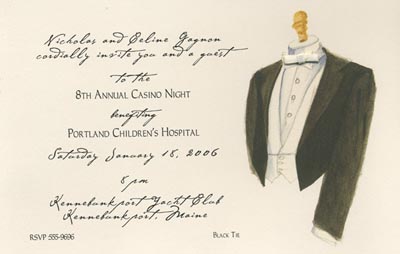 Nicholas and Celine Gagnon
cordially invite you and a guest
to the
8th Annual Casino Night
benefiting
Portland Children's Hospital
Saturday January 18, 2006
8 pm
Kennebunkport Yacht Club
Kennebunkport, Maine
RSVP 555-9696
Black Tie